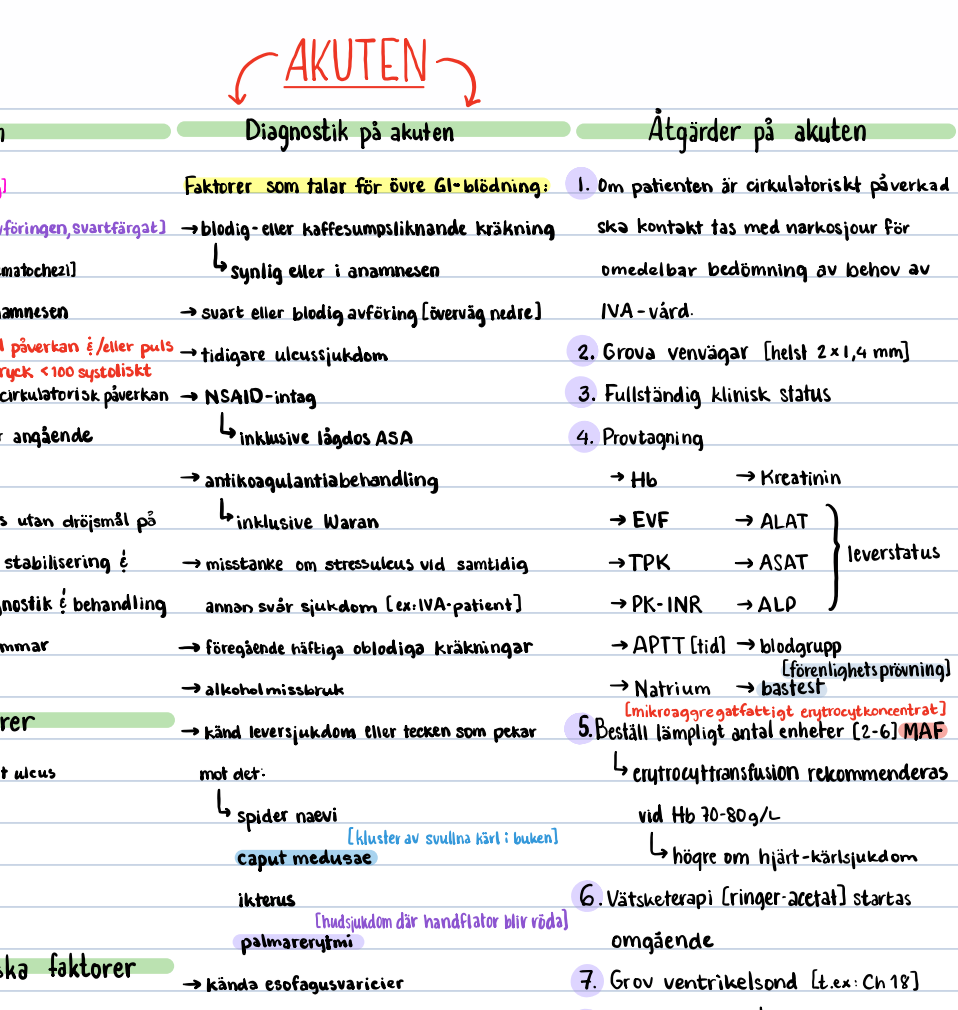 AKUTEN
n
g]
vföringen, svartfärgat]
matochezi]
amnesen
l påverkan & /eller puls
ryck <100 systoliskt
cirkulatorisk påverkan
r angående
s utan dröjsmål på
stabilisering &
gnostik & behandling
mmar
rer
t ulcus
ska faktorer
Diagnostik på akuten
Faktorer som talar för övre GI-blödning:
→ blodig- eller kaffesumpsliknande kräkning
↳ synlig eller i anamnesen
→ svart eller blodig avföring [överväg nedre]
→ tidigare ulcussjukdom
→ NSAID-intag
↳ inklusive lågdos ASA
→ antikoagulantiabehandling
↳ inklusive Waran
→ misstanke om stressulcus vid samtidig
annan svår sjukdom [ex: IVA-patient]
→ föregående häftiga oblodiga kräkningar
→ alkoholmissbruk
→ känd leversjukdom eller tecken som pekar
mot det:
↳ spider naevi
[kluster av svullna kärl i buken]
caput medusae
ikterus
[hudsjukdom där handflator blir röda]
palmarerytmi
→ kända esofagusvaricier
Åtgärder på akuten
1. Om patienten är cirkulatoriskt påverkad
ska kontakt tas med narkosjour för
omedelbar bedömning av behov av
IVA-vård.
2. Grova venvägar [helst 2×1,4 mm]
3. Fullständig klinisk status
4. Provtagning
→ Hb → Kreatinin
→ EVF → ALAT
→ TPK → ASAT leverstatus
→ PK-INR → ALP
→ APTT [tid] → blodgrupp
[förenlighetsprövning]
→ Natrium → bastest
[mikroaggregatfattigt erytrocytkoncentrat]
5. Beställ lämpligt antal enheter [2-6] MAF
↳ erytrocyttransfusion rekommenderas
vid Hb 70-80 g/L
↳ högre om hjärt-kärlsjukdom
6. Vätsketerapi [ringer-acetat] startas
omgående
7. Grov ventrikelsond [t.ex: Ch 18]